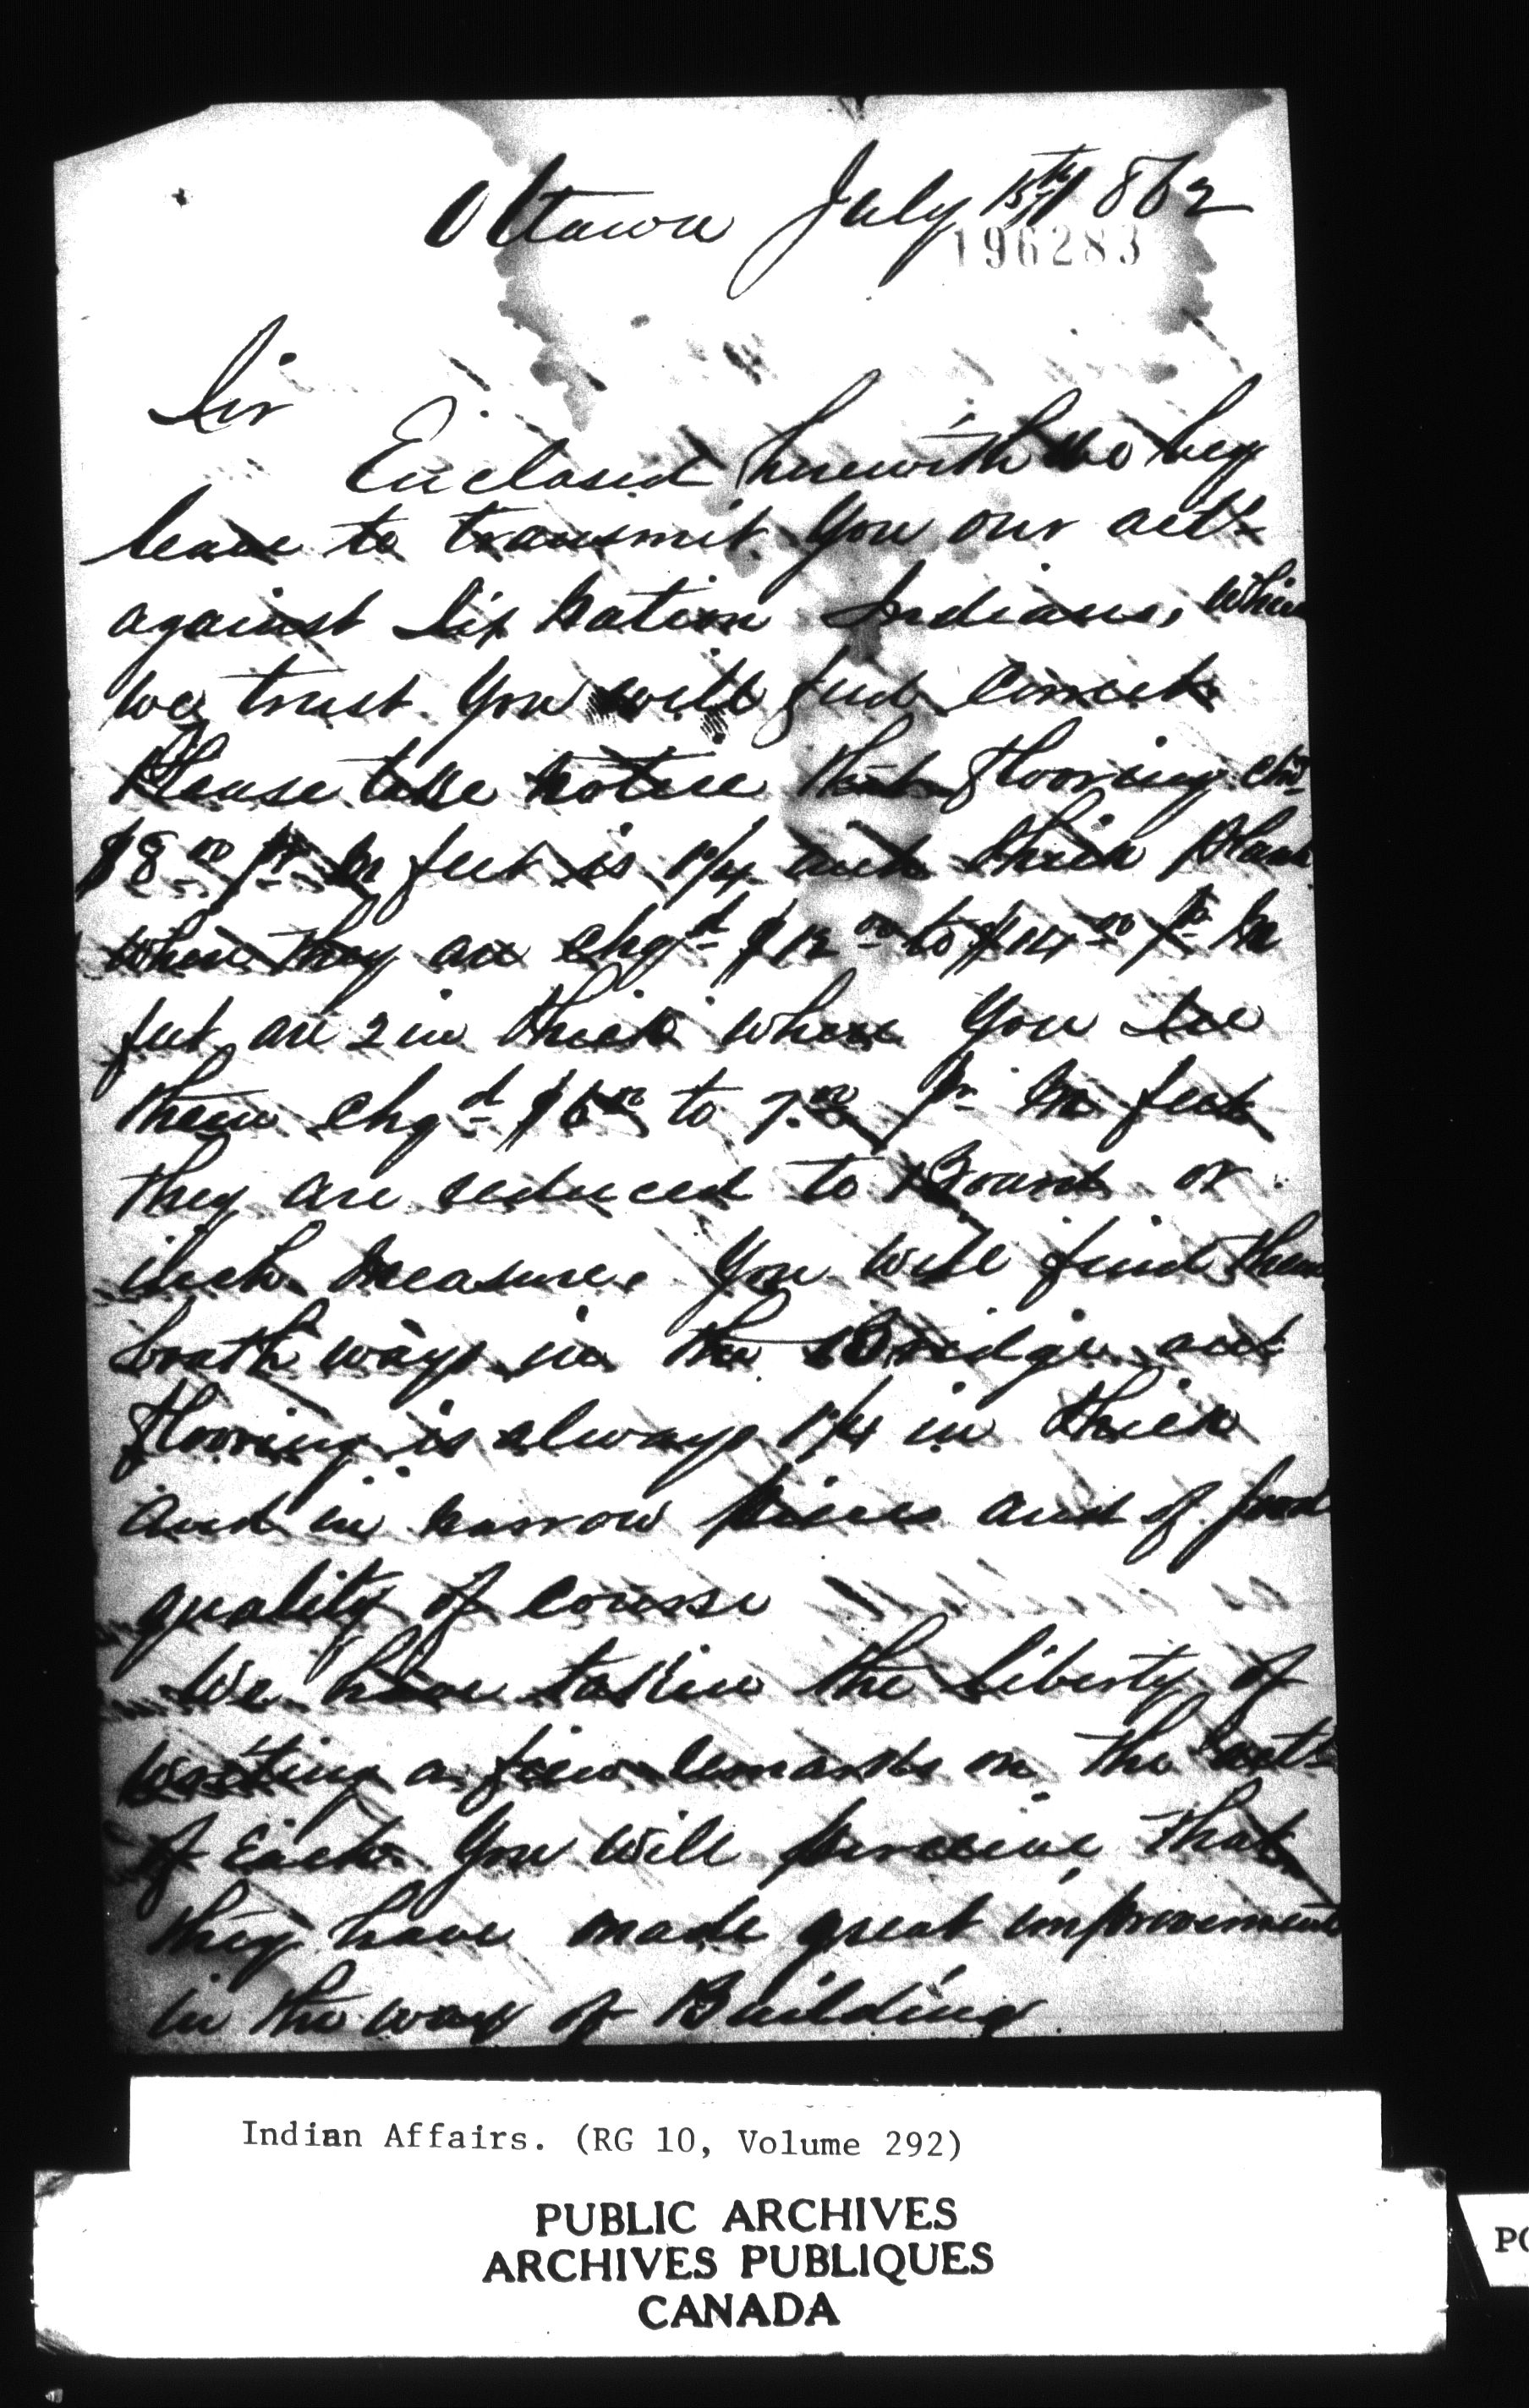 Ottawa July 15th 1862
196283
Sir
Enclosed herewith we beg
leave to transmit You our acts
against Six Nation Indians, which
we trust You will find Correct
Please take Notice that flooring chd
$8.00 pr M feet is 1 1/4 inch thick Plank
where they are chgd $12.00 to $14.00 pr M
feet are 2 in thick where You See
them chgd $6.00 to 7.00 pr M feet
they are reduced to Board or
inch Measure. You will find them
boath ways in the Bridge and
flooring is always 1 1/4 in thick
and in narrow pieces and of good
quality of Course
We have taken the Liberty of
writing a few Remarks on the acts
of Each. You will perceive that
they have made great improvements
in the way of Building
Indian Affairs. (RG 10, Volume 292)
PUBLIC ARCHIVES
ARCHIVES PUBLIQUES
CANADA